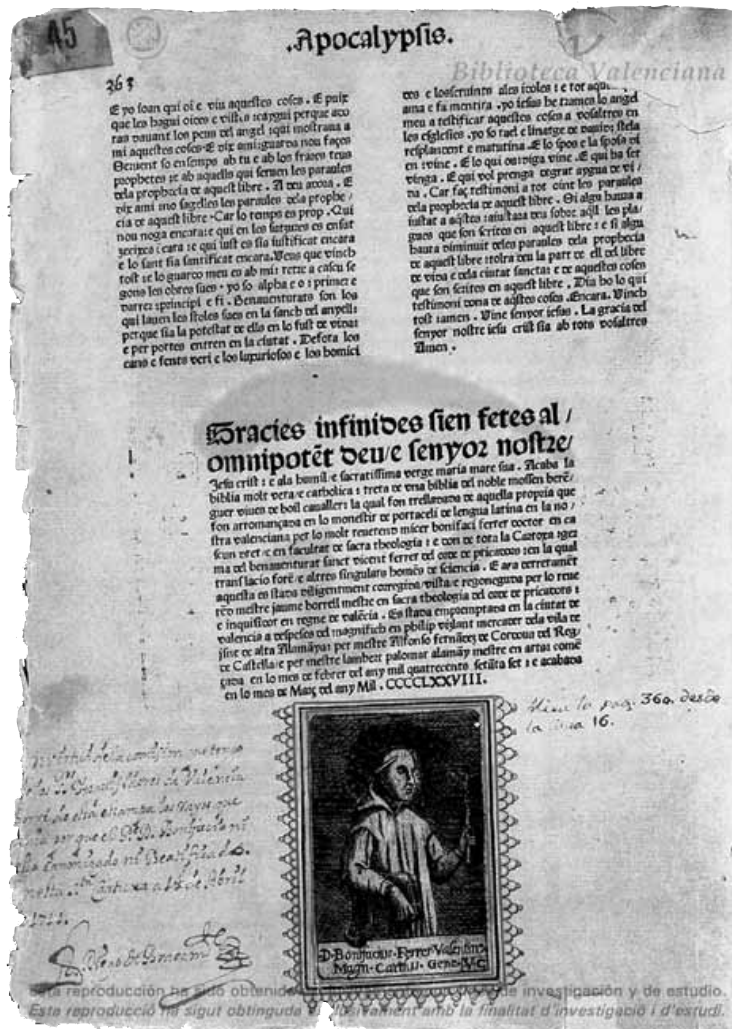 45
.Apocalypsis.
Biblioteca Valenciana
363
E yo ioan qui oi e viu aquestes coses. E puix
que les hagui oides e vistes caygui perque ado
ras dauant los peus del angel: qui mostraua a
mi aquestes coses. E dix ami: guarda nou faces
Seruent so ensemps ab tu e ab los frares teus
prophetes: e ab aquells qui seruen les paraules
dela prophecia de aquest libre. A deu adora. E
dix ami: no sagelles les paraules dela prophe/
cia de aquest libre. Car lo temps es prop. Qui
nou noga encara: e qui en les sutzures es ensut
zeeixca encara: e qui iust es sia iustificat encara
e lo sant sia santificat encara. Veus que vinch
tost: e lo guardo meu es ab mi: retre a cascu se
gons les obres sues. yo so alpha e o: primer e
darrer: principi e fi. Benauenturats son los
qui lauen les stoles sues en la sanch del anyell:
perque sia la potestat de ells en lo fust de vida:
e per portes entren en la ciutat. Defora los
cans e fents veri e los luxuriosos e los homici
des e los seruints ales ydoles: e tot
ama e fa mentira. yo iesus he trames lo angel
meu a testificar aquestes coses a vosaltres en
les esglesies. yo so rael e linatge de dauid: stela
resplandent e matutina. E lo spos e la sposa di
en: vine. E lo qui ou: diga vine. E qui ha set
vinga. E qui vol prenga de grat aygua de vi/
da. Car faç testimoni a tot oint les paraules
dela prophecia de aquest libre. Si algu haura a
iustat a aq̃stes: aiustara deu sobre aq̃ll les pla/
gues que son scrites en aquest libre: e si algu
haura diminuit deles paraules dela prophecia
de aquest libre: tolra deu la part de ell del libre
de vida e dela ciutat sancta: e de aquestes coses
que son scrites en aquest libre. Dia ho lo qui
testimoni dona de aq̃stes coses. Encara. Vinch
tost: amen. Vine senyor iesus. La gracia del
senyor nostre iesu crist sia ab tots vosaltres
Amen.
Gracies infinides sien fetes al/
omnipotẽt deu/e senyor nostre/
Jesu crist: e ala humil/e sacratissima verge maria mare sua. Acaba la
biblia molt vera/e catholica: treta de vna biblia del noble mossen berẽ/
guer viues de boil cavaller: la qual fon trelladada de aquella propria que
fon arromançada en lo monestir de portaceli de lengua latina en la no/
stra valenciana per lo molt reuerend micer bonifaci ferrer doctor en ca
scun dret/e en facultat de sacra theologia: e don de tota la Cartoxa: ger
ma del benauenturat sanct vicent ferrer del orde de pricadors: en la qual
translacio forẽ/e altres singulars homẽs de sciencia. E ara derreramẽt
aquesta es stada diligentment corregida/vista/e regoneguda per lo reue
rẽd mestre jaume borrell mestre en sacra theologia del orde de pricadors:
e inquisidor en regne de valẽcia. Es stada empremptada en la ciutat de
valencia a despeses del magnifich en philip vizlant mercader dela vila de
jsne de alta Alamãya: per mestre Alfonso fernãdez de Cordoua del Reg/
ne de Castella/e per mestre lambert palomar alamãy mestre en arts: comẽ
çada en lo mes de febrer del any mil quatrecents setãta set: e acabada
en lo mes de Març del any Mil. CCCCLXXVIII.
la pag. 360. desde
la linea 16.
de Valencia
estampa los rayos que
porque el
Canonizado ni Beatificado.
Cartuxa a de Abril
D. Bonifacius Ferrer Valentin9
Magn. Carthus. Gene.
Esta reproducción ha sido obtenida de investigación y de estudio.
Esta reproducció ha sigut obtinguda exclusivament amb la finalitat d'investigació i d'estudi.